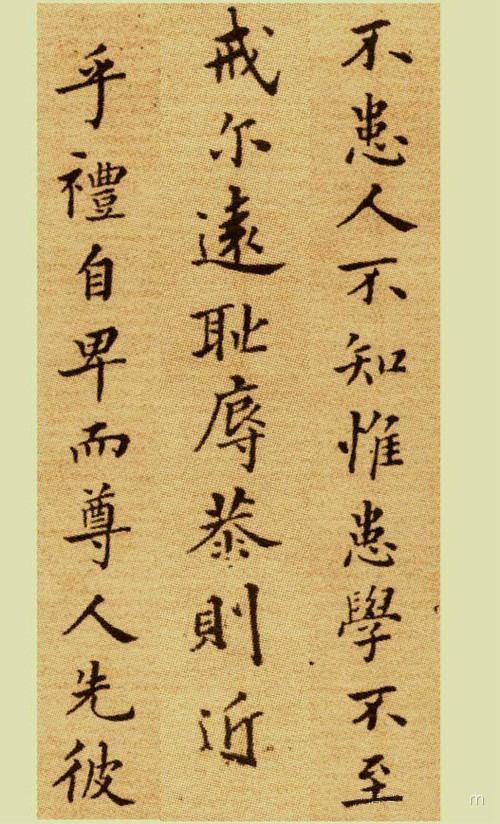 不患人不知惟患學不至
戒尔遠恥辱恭則近
乎禮自卑而尊人先彼
m